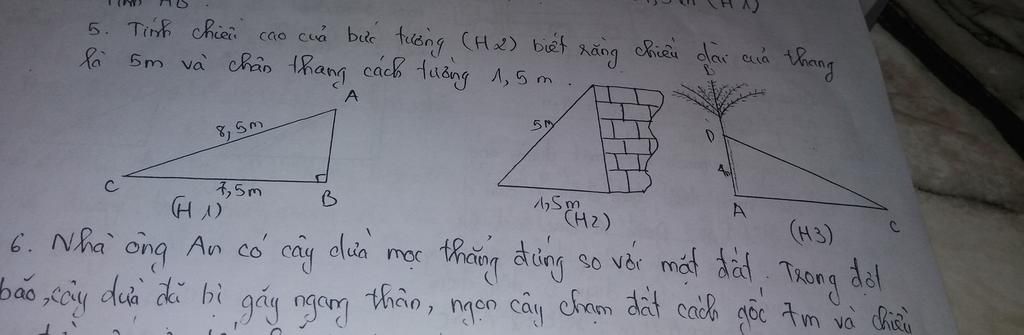 Tính AB.
(H1)
5. Tính chiều cao của bức tường (H2) biết rằng chiều dài của thang
là 5m và chân thang cách tường 1,5m.
A
8,5m
C
7,5m
B
(H1)
5m
1,5m
(H2)
B
D
A
C
(H3)
6. Nhà ông An có cây dừa mọc thẳng đứng so với mặt đất. Trong đợt
bão, cây dừa đã bị gãy ngang thân, ngọn cây chạm đất cách gốc 7m và chiều